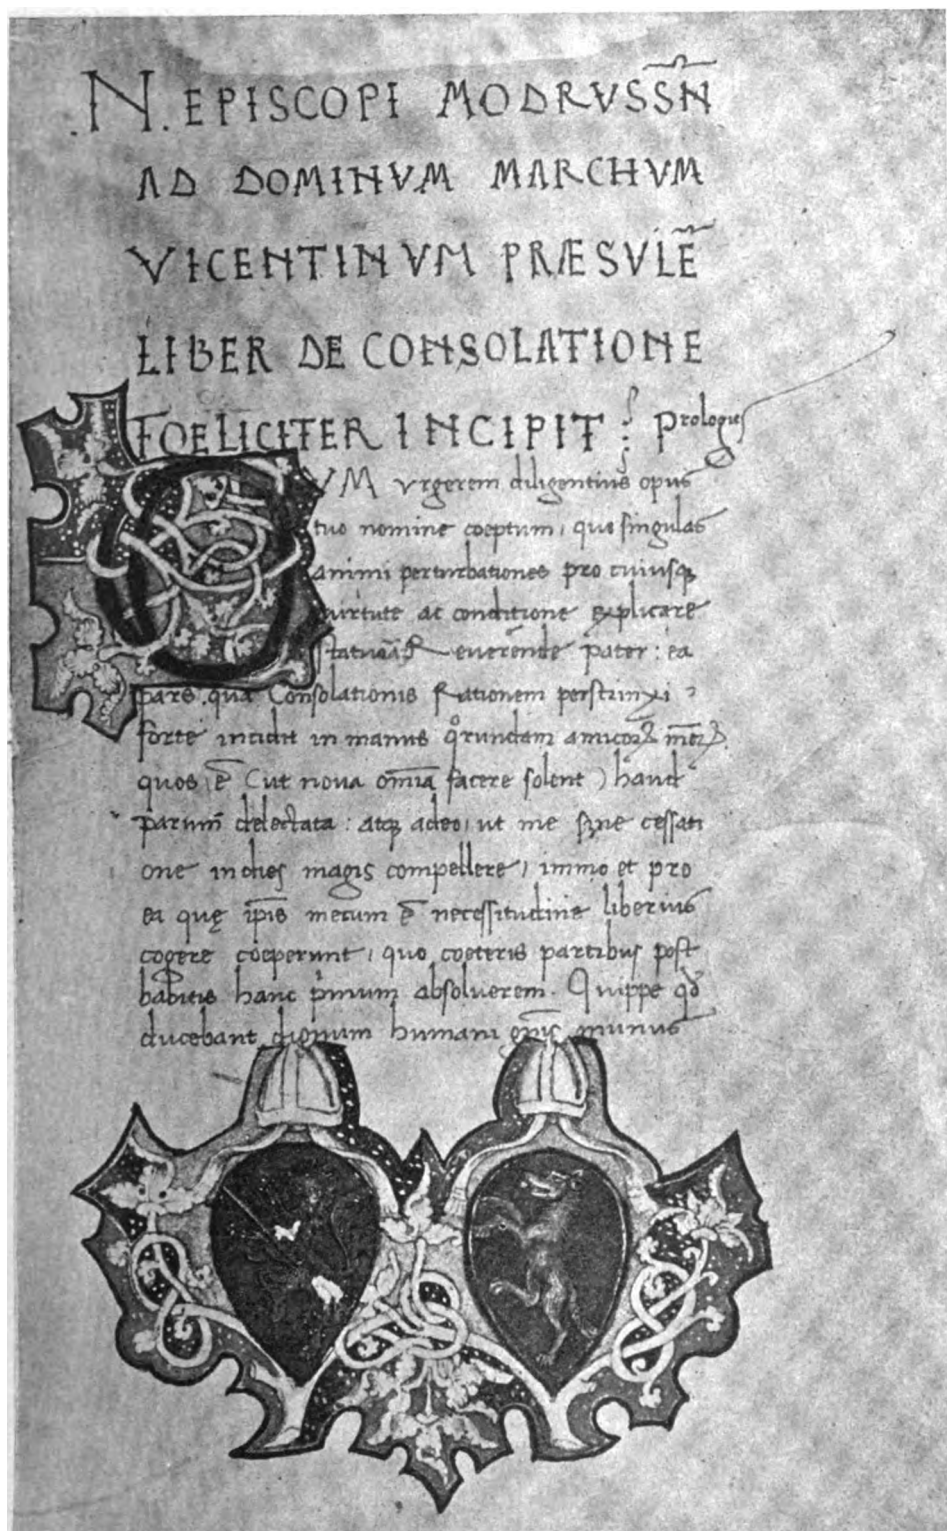 .N. EPISCOPI MODRVSSÑ
AD DOMINVM MARCHVM
VICENTINVM PRÆSVLẼ
LIBER DE CONSOLATIONE
FOELICITER INCIPIT : Prologus
CVM Vrgerem diligentius opus
tuo nomine coeptum, quo singulas
animi perturbationes pro cuiusqꝫ
uirtute ac conditione explicare
statuerã Reuerende pater : ea
pars qua Consolationis Rationem perstrinxi
forte incidit in manus qͦrundam amicoꝝ meoꝝ
quos ẽ (ut noua om̃ia facere solent) haud
parum delectata : atqꝫ adeo, ut me sine cessati
one indies magis compellere, immo et pro
ea quę ip̃is mecum ẽ necessitudine liberius
cogere coeperunt, quo coeteris partibus post
habitis hanc pͥmum absoluerem. Quippe qď
ducebant dignum humani gñis munus